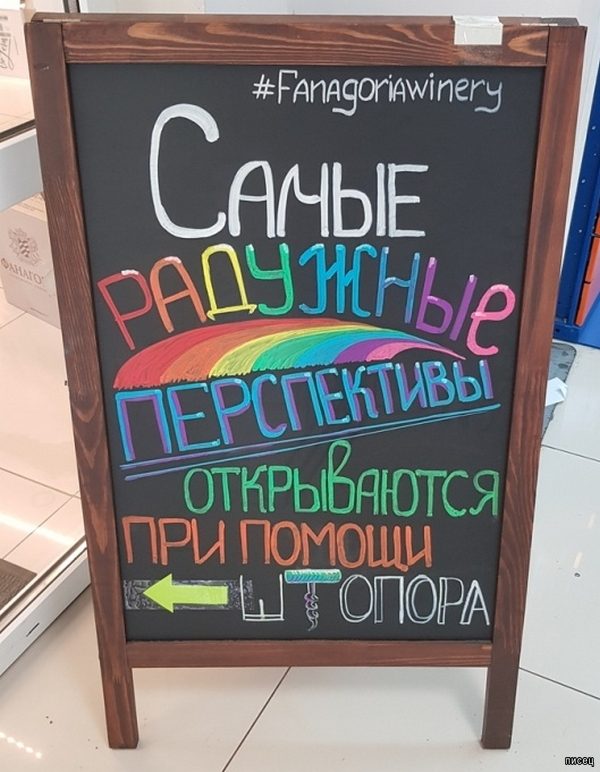 #Fanagoriawinery
Самые
РАДУЖНЫе
ПЕРСПЕКТИВЫ
ОТКРЫВАЮТСЯ
ПРИ ПОМОЩИ
ШТОПОРА
ФАНАГО
писец